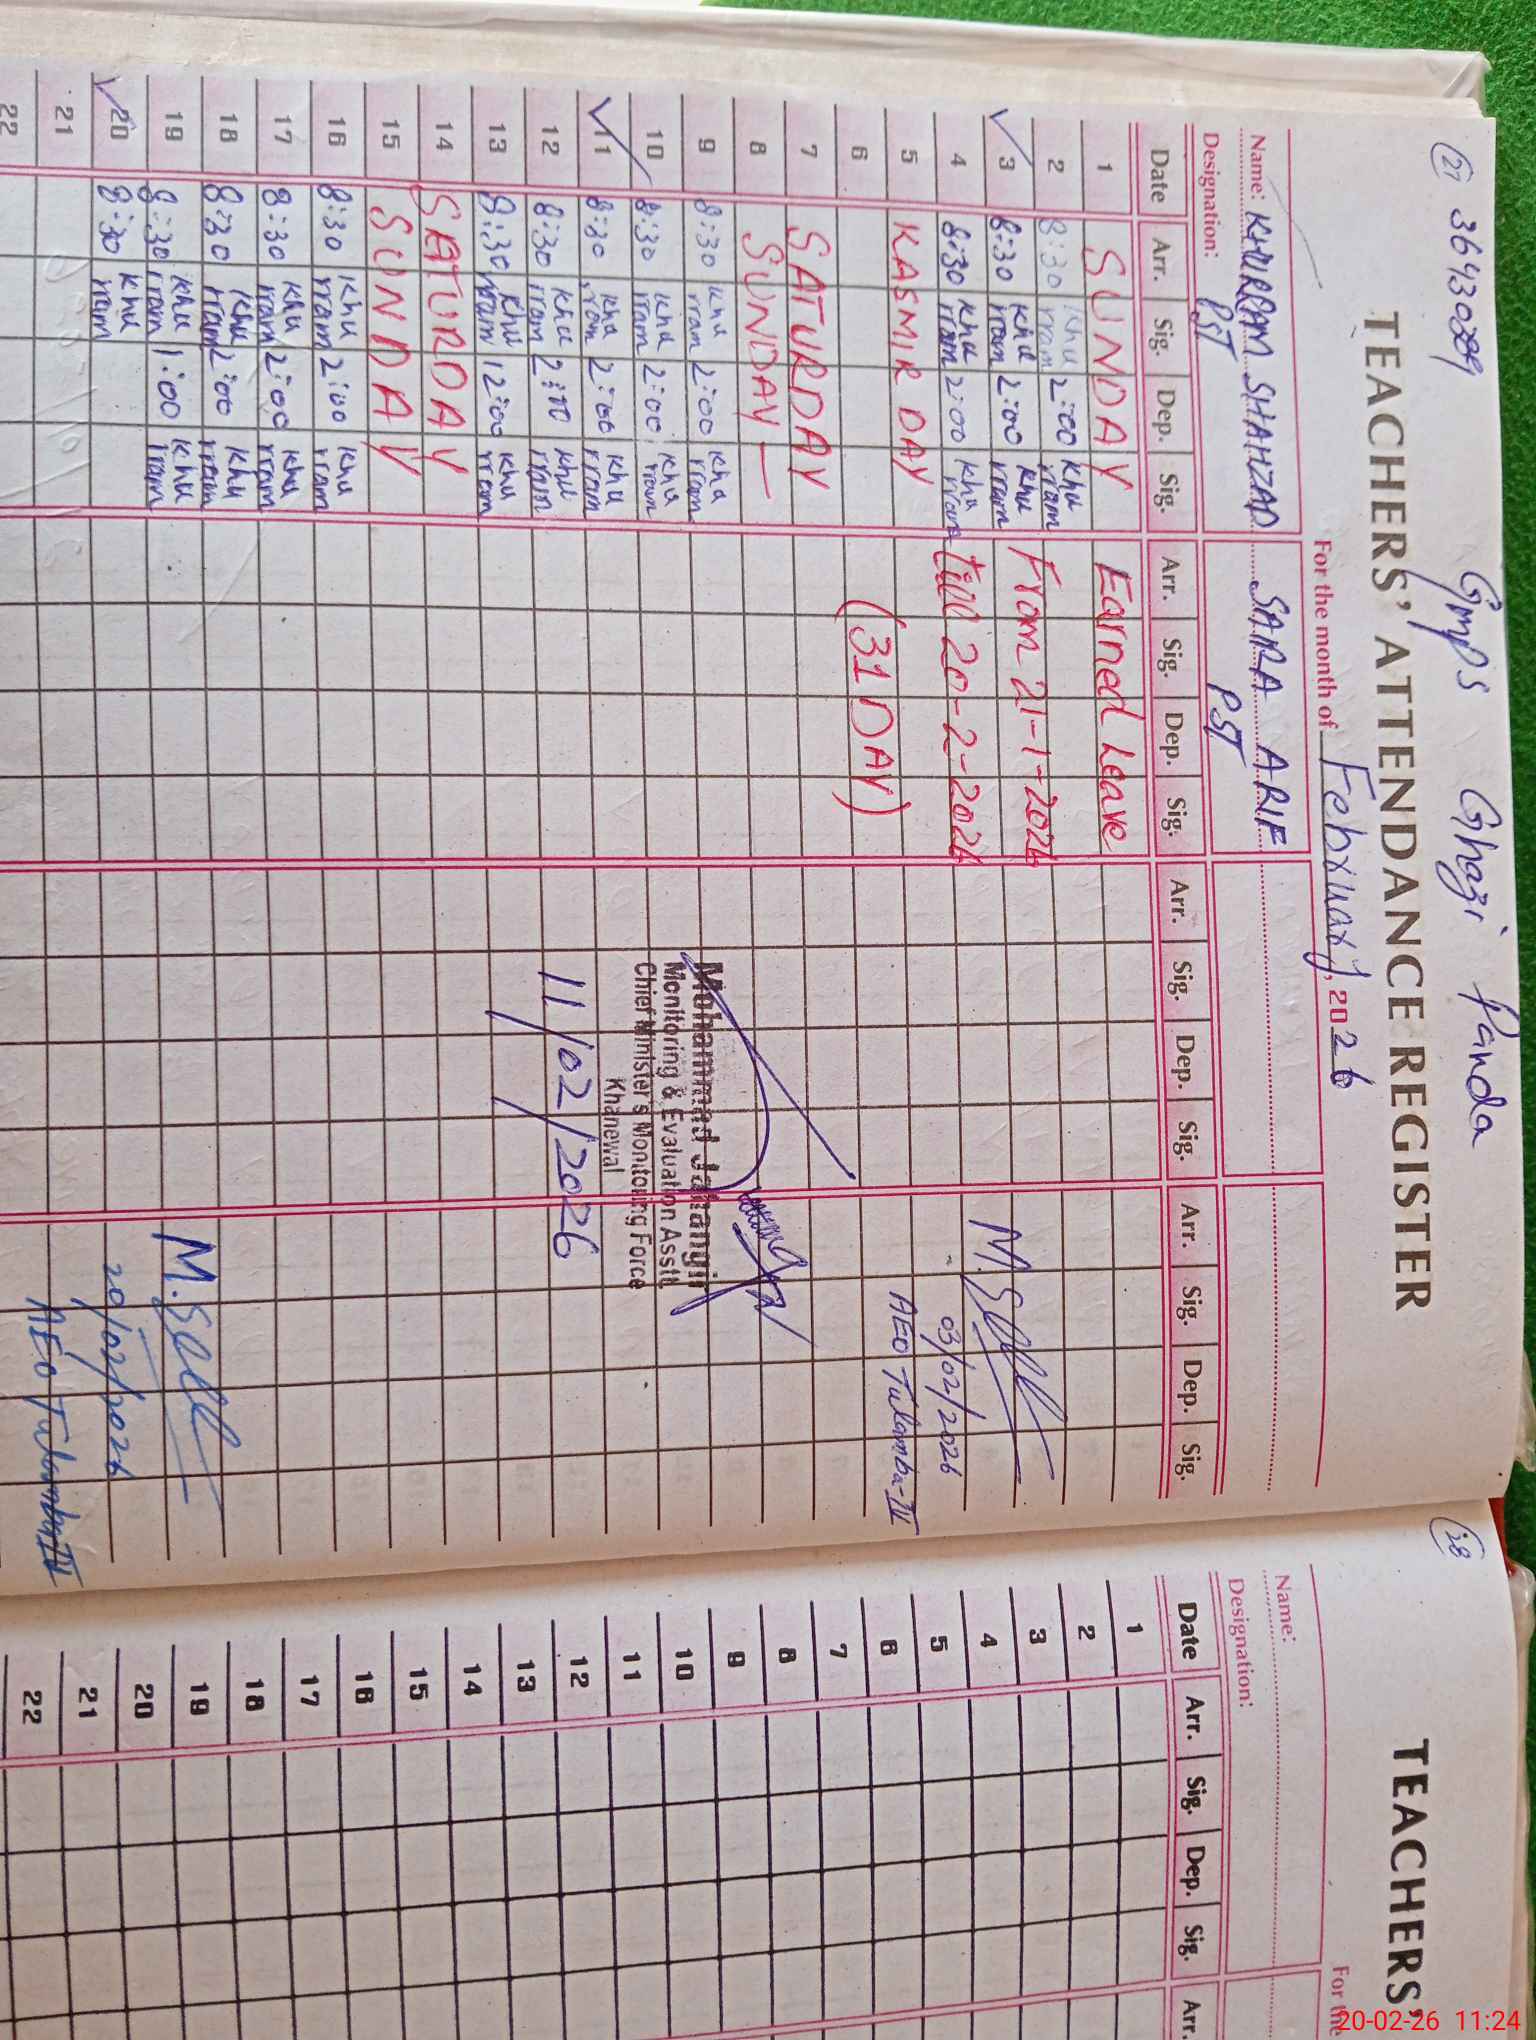 27 36430089 Gmps Ghazi Panda
TEACHERS' ATTENDANCE REGISTER
For the month of February, 2026
Name: KHURRAM SHAHZAD SARA ARIF
Designation: PST PST
Date Arr. Sig. Dep. Sig. Arr. Sig. Dep. Sig. Arr. Sig. Dep. Sig. Arr. Sig. Dep. Sig.
1 SUNDAY Earned Leave
2 8:30 Khurram 2:00 Khurram From 21-1-2026
3 8:30 Khurram 2:00 Khurram
4 8:30 Khurram 2:00 Khurram till 20-2-2026
5 KASMIR DAY
6 (31 DAY)
7 SATURDAY
8 SUNDAY
9 8:30 Khurram 2:00 Khurram
10 8:30 Khurram 2:00 Khurram
11 8:30 Khurram 2:00 Khurram
12 8:30 Khurram 2:00 Khurram
13 8:30 Khurram 12:00 Khurram
14 SATURDAY
15 SUNDAY
16 8:30 Khurram 2:00 Khurram
17 8:30 Khurram 2:00 Khurram
18 8:30 Khurram 2:00 Khurram
19 8:30 Khurram 1:00 Khurram
20 8:30 Khurram
21
22
03/02/2026
AEO Tulamba-IV
Mohammad Jahangir
Monitoring & Evaluation Asstt.
Chief Minister's Monitoring Force
Khanewal
11/02/2026
20/02/2026
AEO Tulamba IV
28
TEACHERS'
For the
Name:
Designation:
Date Arr. Sig. Dep. Sig. Arr.
1
2
3
4
5
6
7
8
9
10
11
12
13
14
15
16
17
18
19
20
21
22
20-02-26 11:24